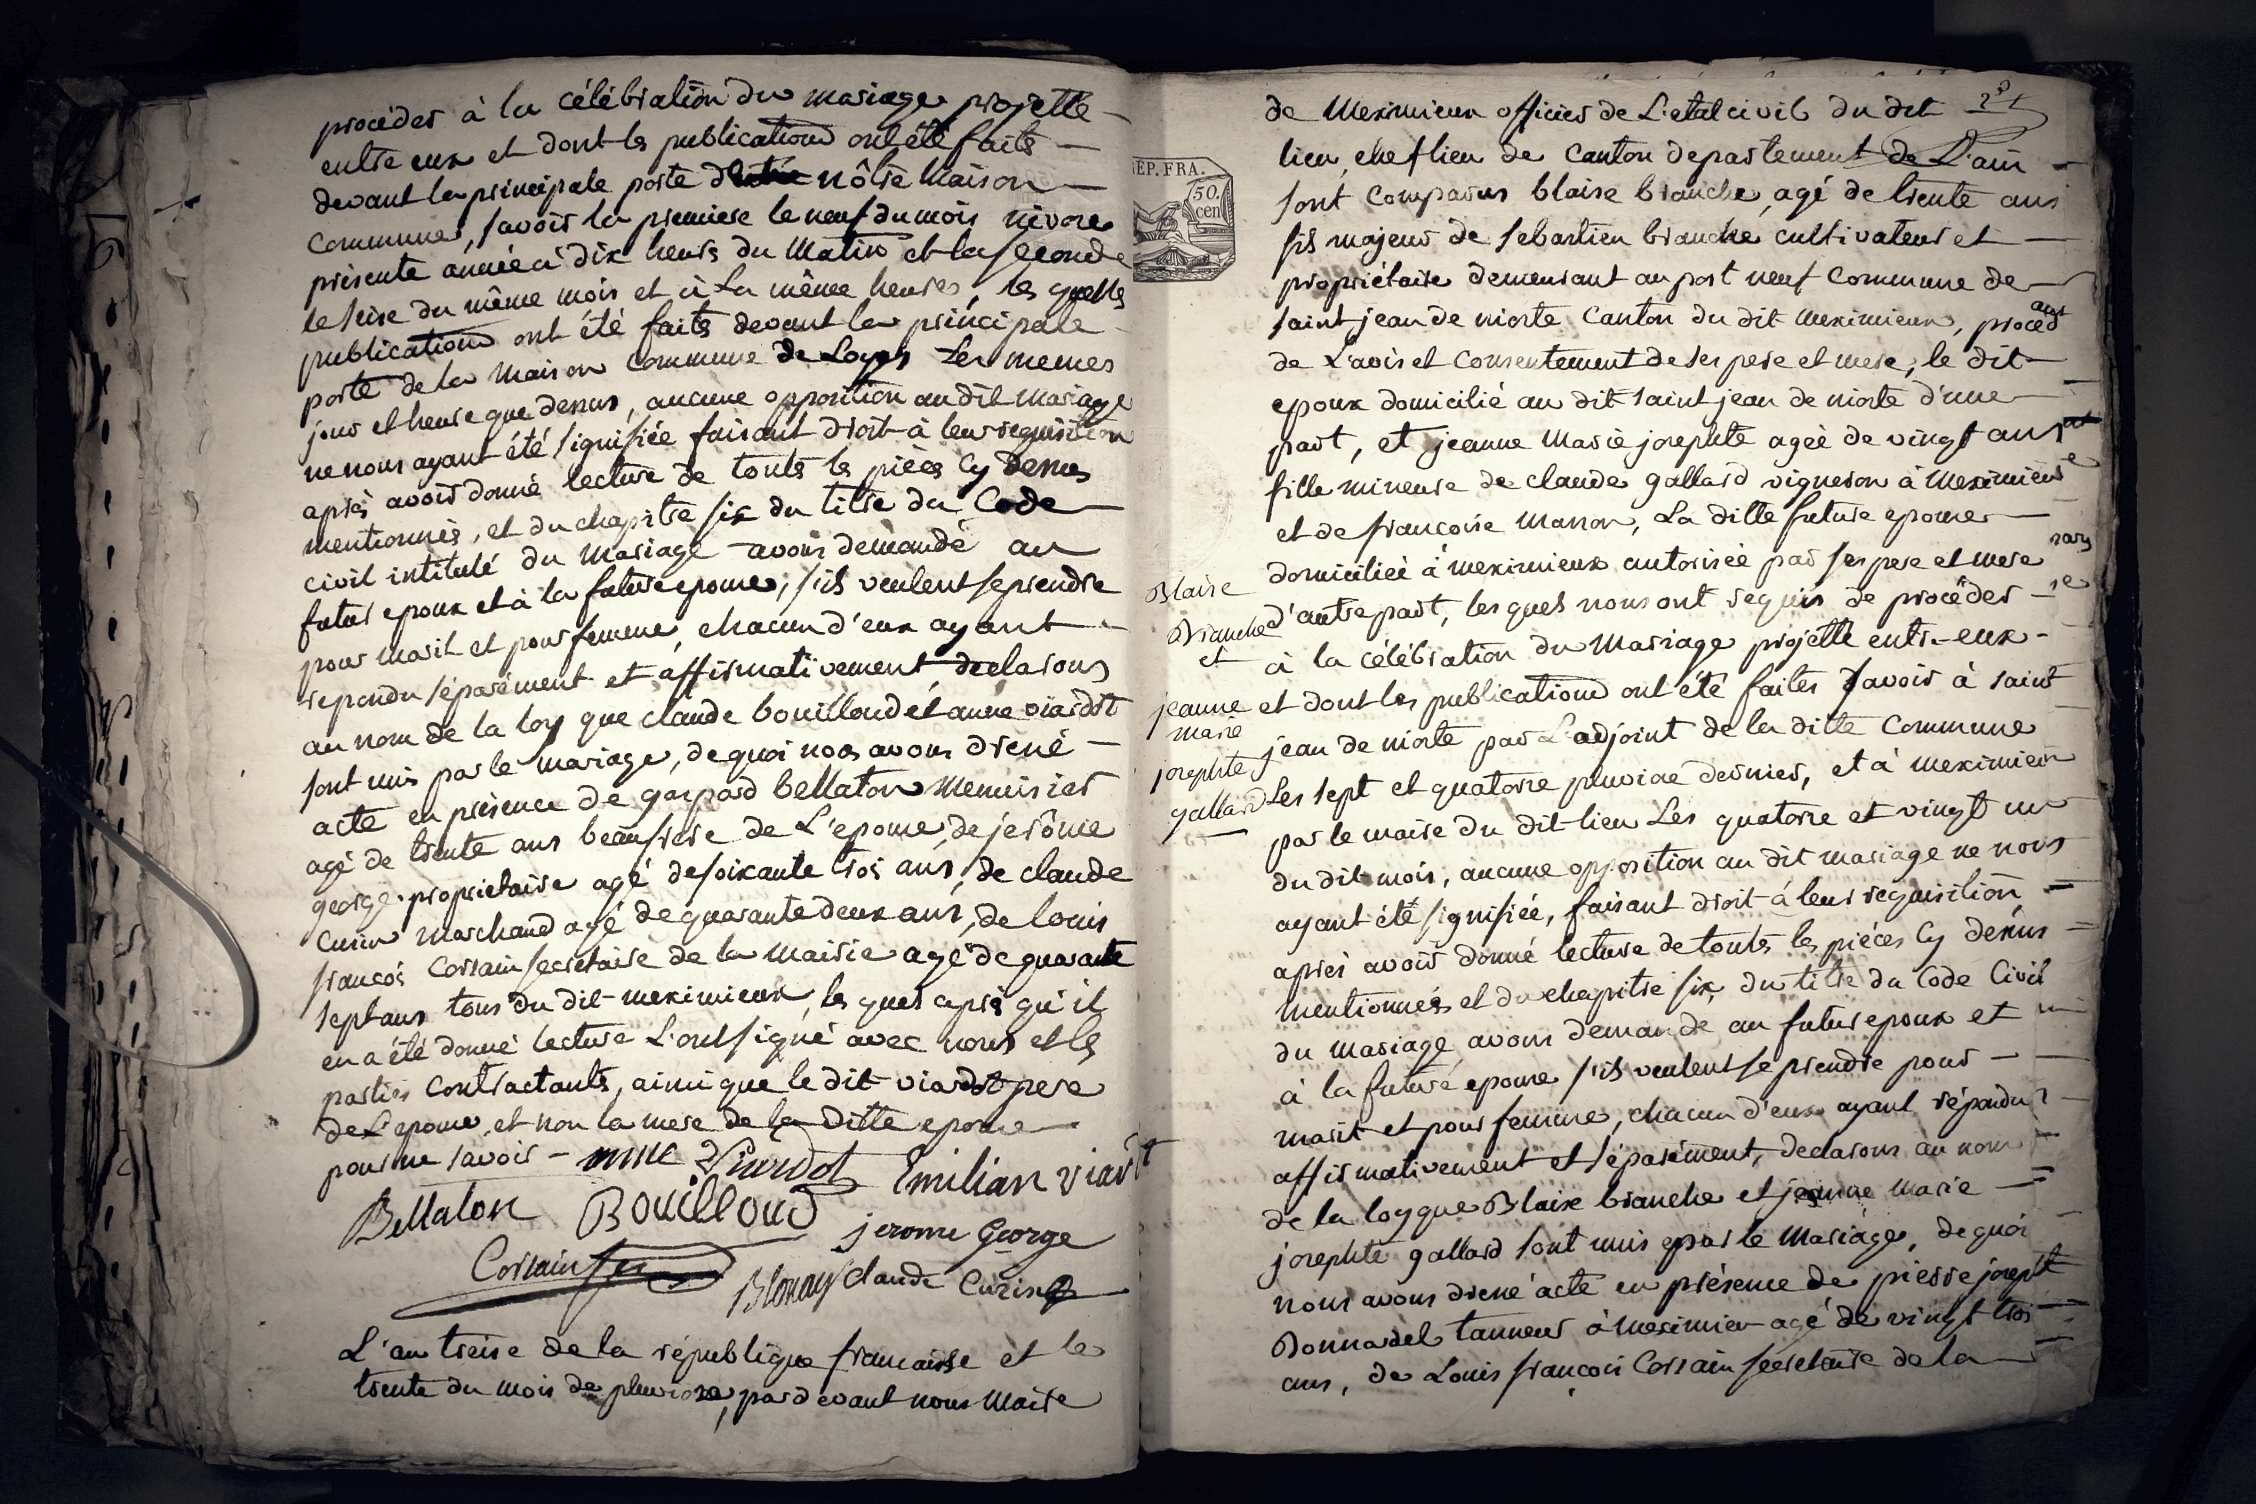 procéder à la célébration du mariage projetté
entre eux et dont les publications ont été faites
devant la principale porte de notre maison
commune, savoir la premiere le neuf du mois nivose
présente année à dix heures du matin et la seconde
le seise du même mois et à la même heures, les quelles
publications ont été faites devant la principale
porte de la maison commune de Loyes les memes
jour et heure que dessus, aucune opposition au dit mariage
ne nous ayant été signifiée faisant droit à leur requisition
après avoir donné lecture de toutes les pièces cy dessus
mentionnées, et du chapitre six du titre du Code
civil intitulé du mariage avons demandé au
futur epoux et à la future epouse, s'ils veulent se prendre
pour marit et pour femme, chacun d'eux ayant
repondu séparément et affirmativement, declarons
au nom de la loy que claude bouilloud et anne viardot
sont unis par le mariage, de quoi nous avons dréné
acte en présence de gaspard bellaton menuisier
agé de trente ans beaufrere de L'epouse, de jerôme
george proprietaire agé de soixante trois ans, de claude
Curin marchand agé de quarante deux ans, de louis
françois Corsain secretaire de la mairie agé de quarante
sept ans tous du dit meximieux, les quels après qu'il
en a été donné lecture L'ont signé avec nous et les
parties contractants, ainsi que le dit viardot pere
de L'epouse, et non la mere de la ditte epouse
pour ne savoir - anne Viardot Emilian viardot
Bellaton Bouilloud jerome George
Corsain Blonay claude Curin
L'an treise de la république francaise et le
trente du mois de pluviose, par devant nous maire
REP. FRA.
50.
cen
de Meximieux officier de L'etat civil du dit
lieu, chef lieu de canton departement de L'ain
sont comparus blaise branche, agé de trente ans
fils majeur de sebastien branche cultivateur et
propriétaire demeurant au port neuf commune de
saint jean de niorte canton du dit meximieux, procédant
de L'avis et consentement de ses pere et mere, le dit
epoux domicilié au dit saint jean de niorte d'une
part, et jeanne marie josephte agée de vingt ans
fille mineure de claude gallard vigneron à meximieux
et de françoise manon, La ditte future epouse
domiciliée à meximieux autorisée par ses pere et mere
d'autre part, les quels nous ont requis de procéder
à la célébration du mariage projetté entre eux
et dont les publications ont été faites savoir à saint
jean de niorte par L'adjoint de la ditte commune
Les sept et quatorze pluviose dernier, et à meximieux
par le maire du dit lieu Les quatorze et vingt un
du dit mois, aucune opposition au dit mariage ne nous
ayant été signifiée, faisant droit à leur requisition
après avoir donné lecture de toutes les pièces cy dessus
mentionnées et du chapitre six, du titre du Code Civil
du mariage avons demandé au futur epoux et
à la future epouse s'ils veulent se prendre pour
marit et pour femme, chacun d'eux ayant répondu
affirmativement et séparément, declarons au nom
de la loy que Blaise branche et jeanne marie
josephte gallard sont unis par le mariage, de quoi
nous avons dréné acte en présence de pierre josepht
Donnadel tanneur à meximieu agé de vingt trois
ans, de Louis françois Corsain secretaire de la
Blaise
Branche
et
jeanne
marie
josephte
gallard